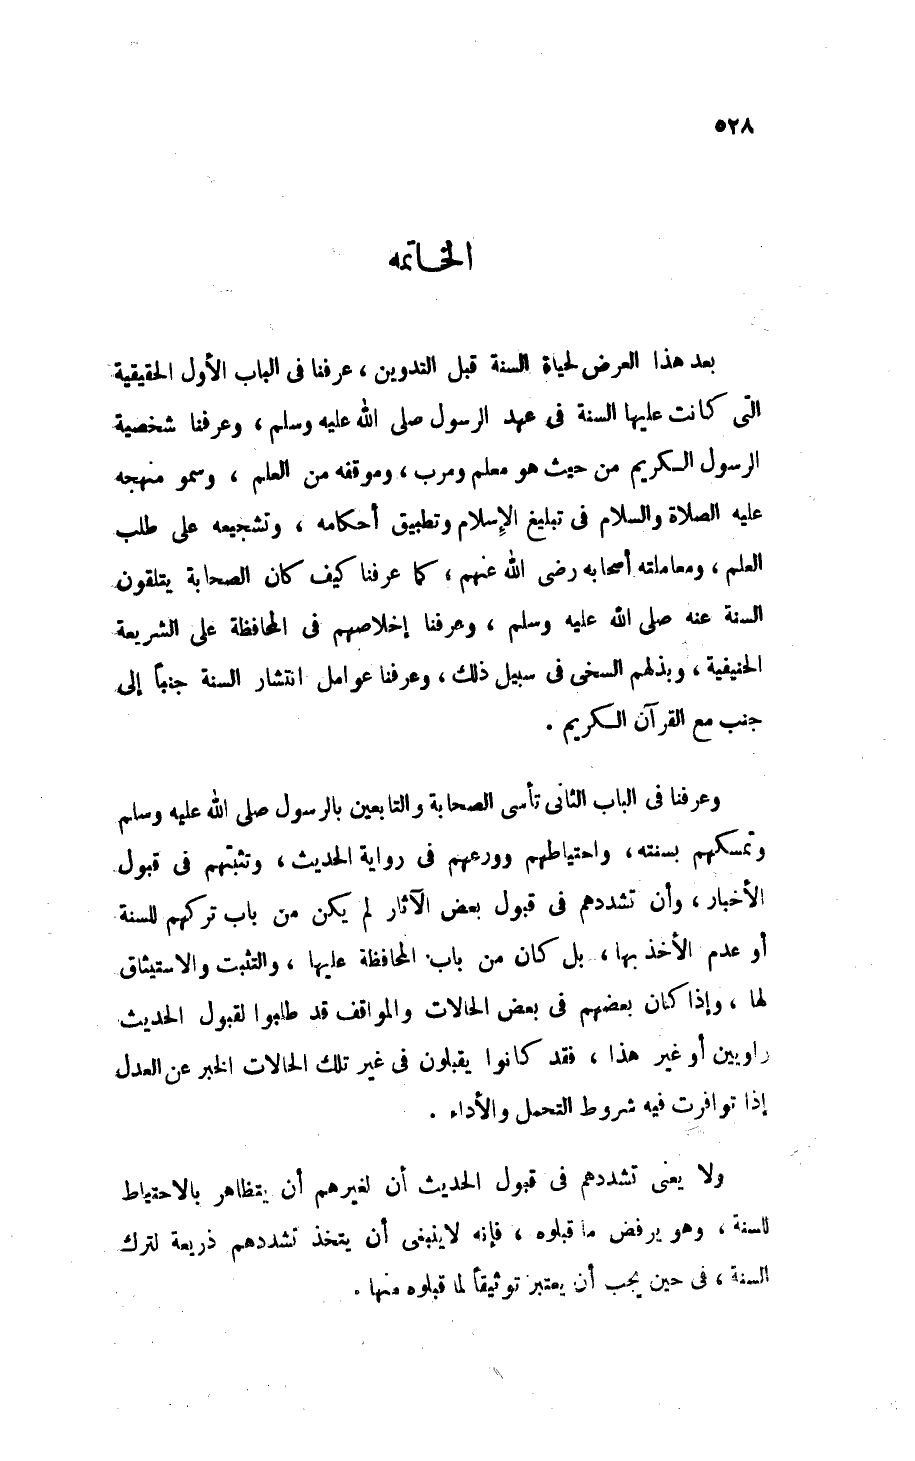 ٥٢٨
الخاتمه
بعد هذا العرض لحياة السنة قبل التدوين ، عرفنا فى الباب الأول الحقيقية
التى كانت عليها السنة فى عهد الرسول صلى الله عليه وسلم ، وعرفنا شخصية
الرسول الكريم من حيث هو معلم ومرب ، وموقفه من العلم ، وسمو منهجه
عليه الصلاة والسلام فى تبليغ الإسلام وتطبيق أحكامه ، وتشجيعه على طلب
العلم ، ومعاملته أصحابه رضى الله عنهم ، كما عرفنا كيف كان الصحابة يتلقون
السنة عنه صلى الله عليه وسلم ، وعرفنا إخلاصهم فى المحافظة على الشريعة
الحنيفية ، وبذلهم السخى فى سبيل ذلك ، وعرفنا عوامل انتشار السنة جنباً إلى
جنب مع القرآن الكريم .
وعرفنا فى الباب الثانى تأسى الصحابة والتابعين بالرسول صلى الله عليه وسلم
وتمسكهم بسنته ، واحتياطهم وورعهم فى رواية الحديث ، وتثبتهم فى قبول
الأخبار ، وأن تشددهم فى قبول بعض الآثار لم يكن من باب تركهم للسنة
أو عدم الأخذ بها ، بل كان من باب المحافظة عليها ، والتثبت والاستيثاق
لها ، وإذا كان بعضهم فى بعض الحالات والمواقف قد طلبوا لقبول الحديث
راويين أو غير هذا ، فقد كانوا يقبلون فى غير تلك الحالات الخبر عن العدل
إذا توافرت فيه شروط التحمل والأداء .
ولا يعنى تشددهم فى قبول الحديث أن لغيرهم أن يتظاهر بالاحتياط
للسنة ، وهو يرفض ما قبلوه ، فإنه لاينبغى أن يتخذ تشددهم ذريعة لترك
السنة ، فى حين يجب أن يعتبر توثيقاً لما قبلوه منها .